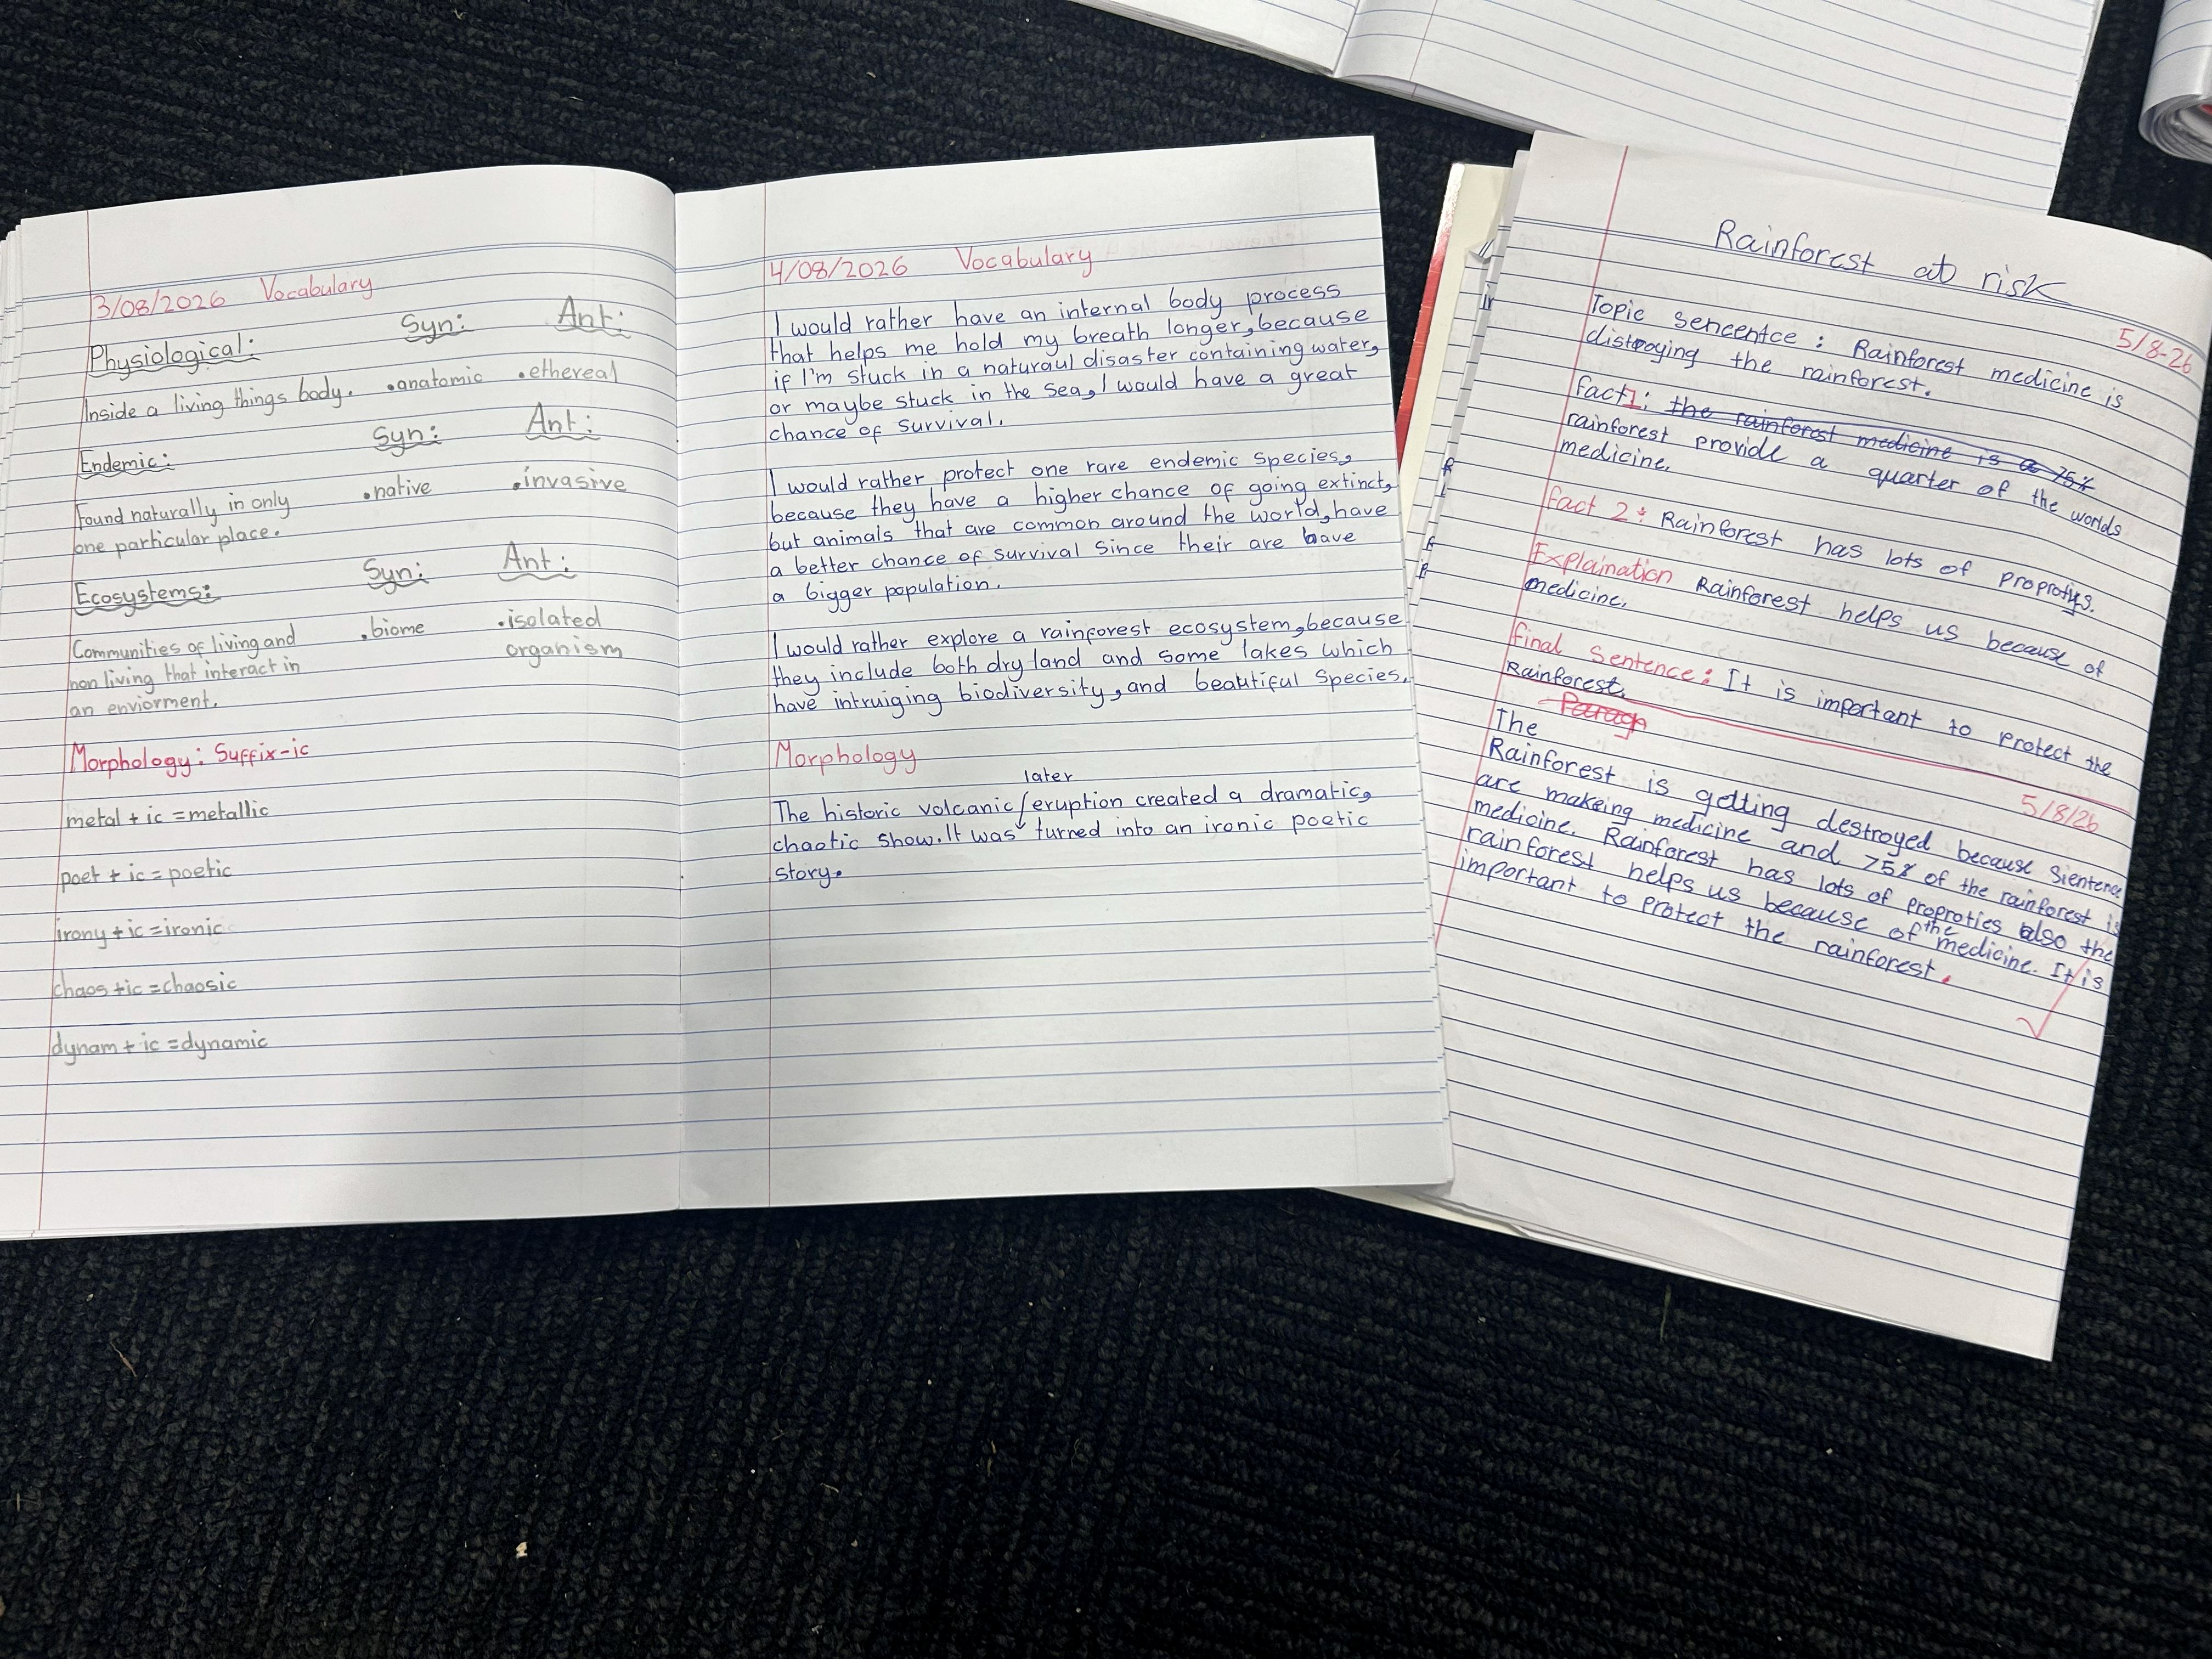 3/08/2026 Vocabulary
Syn: Ant:
Physiological:
Inside a living things body. •anatomic •ethereal
Syn: Ant:
Endemic:
Found naturally in only •native •invasive
one particular place.
Syn: Ant:
Ecosystems:
Communities of living and •biome •isolated
non living that interact in organism
an enviorment.
Morphology: Suffix-ic
metal + ic = metallic
poet + ic = poetic
irony + ic = ironic
chaos + ic = chaosic
dynam + ic = dynamic
4/08/2026 Vocabulary
I would rather have an internal body process
that helps me hold my breath longer, because
if I'm stuck in a naturaul disaster containing water,
or maybe stuck in the sea, I would have a great
chance of survival.
I would rather protect one rare endemic species,
because they have a higher chance of going extinct,
but animals that are common around the world, have
a better chance of survival since their are have
a bigger population.
I would rather explore a rainforest ecosystem, because
they include both dry land and some lakes which
have intruiging biodiversity, and beautiful species.
Morphology
later
The historic volcanic eruption created a dramatic,
chaotic show. It was turned into an ironic poetic
story.
Rainforest at risk
5/8-26
Topic sencentce : Rainforest medicine is
distroying the rainforest.
fact1: the rainforest medicine is a 75%
rainforest provide a quarter of the worlds
medicine.
fact 2 : Rainforest has lots of proprotiys.
Explaination Rainforest helps us because of
medicine.
final sentence : It is important to protect the
Rainforest.
Paragr
5/8/26
The
Rainforest is getting destroyed because Sientence
are makeing medicine and 75% of the rainforest is
medicine. Rainforest has lots of proproties also the
rainforest helps us because of the medicine. It is
important to protect the rainforest.